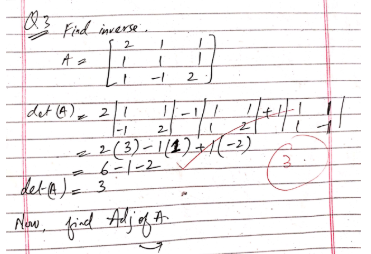 Q.3 Find inverse.
A = [ 2 1 1
1 1 1
1 -1 2 ]
det(A) = 2 | 1 1 | -1 | 1 1 | +1 | 1 1 |
| -1 2 | | 1 2 | | 1 -1 |
= 2(3) - 1(1) + 1(-2)
= 6 - 1 - 2
det(A) = 3
3
Now, find Adj of A